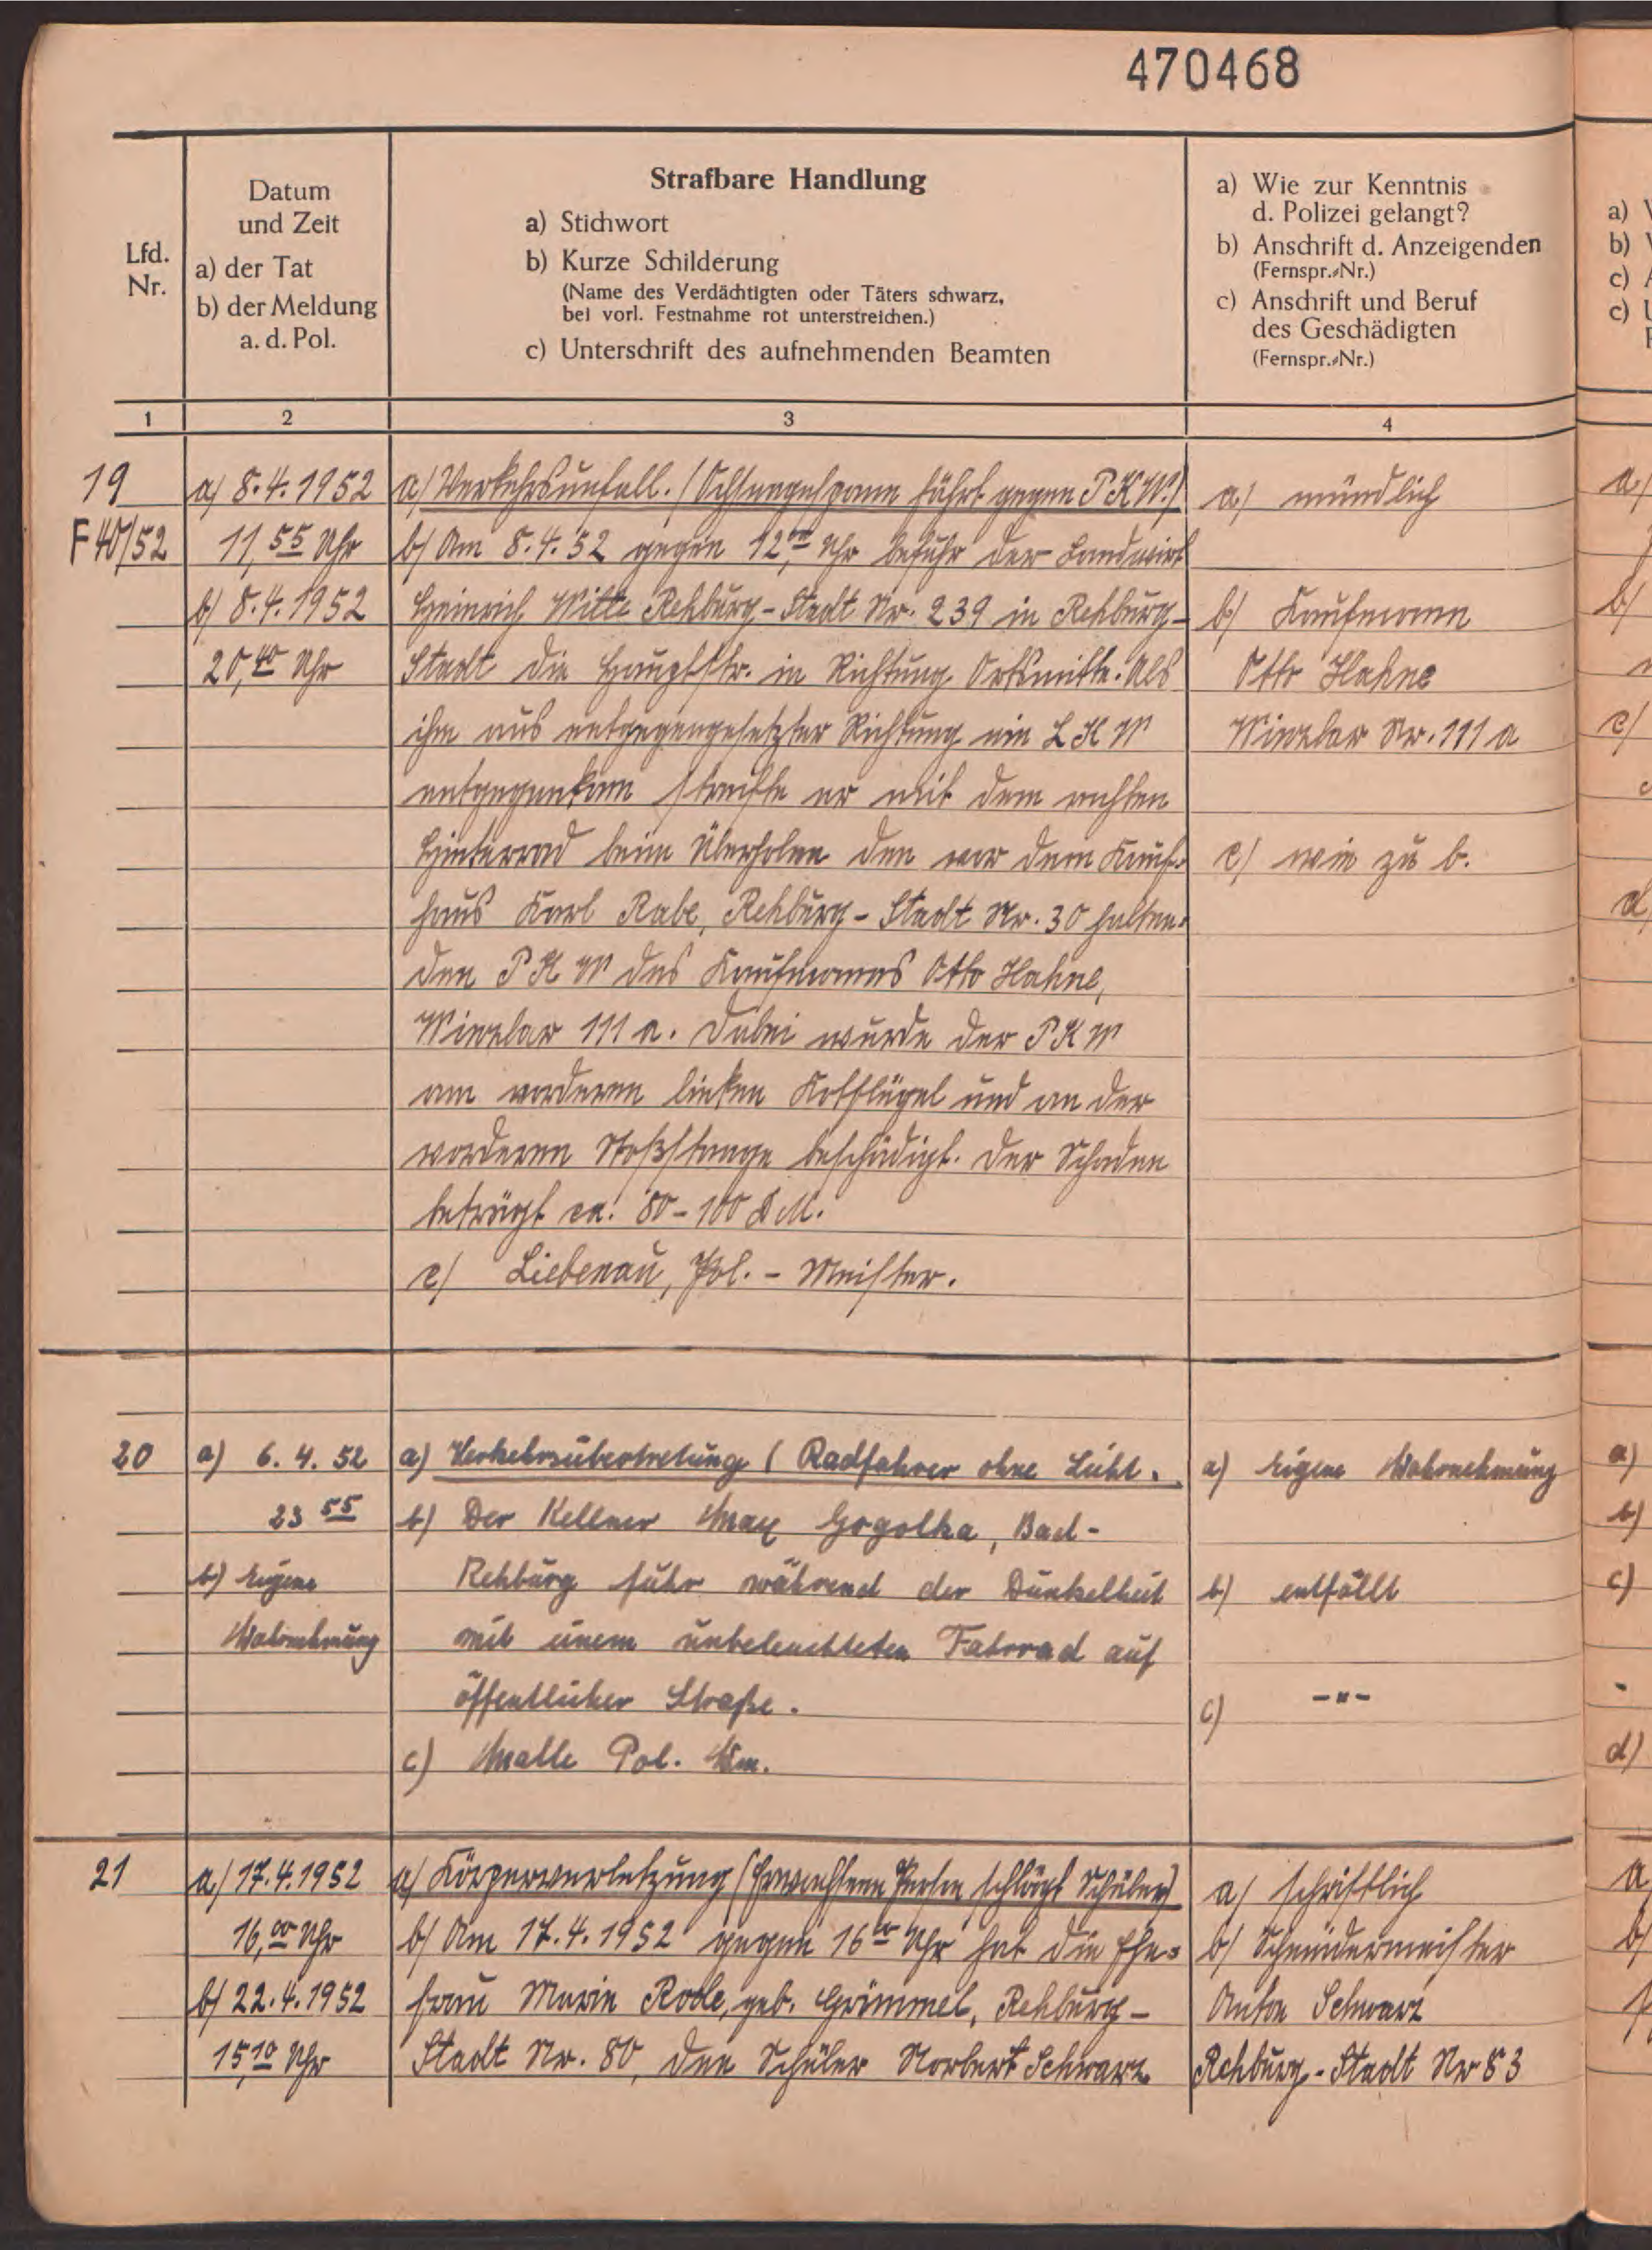 470468
Lfd.
Nr.
Datum
und Zeit
a) der Tat
b) der Meldung
a. d. Pol.
Strafbare Handlung
a) Stichwort
b) Kurze Schilderung
(Name des Verdächtigten oder Täters schwarz,
bei vorl. Festnahme rot unterstreichen.)
c) Unterschrift des aufnehmenden Beamten
a) Wie zur Kenntnis
d. Polizei gelangt?
b) Anschrift d. Anzeigenden
(Fernspr.-Nr.)
c) Anschrift und Beruf
des Geschädigten
(Fernspr.-Nr.)
1
2
3
4
19
F 40/52
a) 8.4.1952
11,55 Uhr
b) 8.4.1952
20,40 Uhr
a) Verkehrsunfall. (Ochsengespann fährt gegen PKW.)
b) Am 8.4.52 gegen 12,00 Uhr befuhr der Landwirt
Heinrich Witte Rehburg-Stadt Nr. 239 in Rehburg-
Stadt die Hauptstr. in Richtung Ortsmitte. Als
ihm aus entgegengesetzter Richtung ein LKW
entgegenkam streifte er mit dem rechten
Hinterrad beim Überholen den vor dem Kauf-
haus Karl Rabe, Rehburg-Stadt Nr. 30 halten-
den PKW des Kaufmanns Otto Hahne,
Winzlar 111 a. Dabei wurde der PKW
am vorderen linken Kotflügel und an der
vorderen Stoßstange beschädigt. Der Schaden
beträgt ca. 80-100 DM.
c) Liebenau, Pol.-Meister.
a) mündlich
b) Kaufmann
Otto Hahne
Winzlar Nr. 111 a
c) wie zu b.
20
a) 6.4.52
23 55
b) Eigene
Wahrnehmung
a) Verkehrsübertretung (Radfahrer ohne Licht.
b) Der Kellner Max Gogolka, Bad-
Rehburg fuhr während der Dunkelheit
mit einem unbeleuchteten Fahrrad auf
öffentlicher Straße.
c) Malle Pol. Wm.
a) Eigene Wahrnehmung
b) entfällt
c) -"-
21
a) 17.4.1952
16,00 Uhr
b) 22.4.1952
15,10 Uhr
a) Körperverletzung (Erwachsene Person schlägt Schüler)
b) Am 17.4.1952 gegen 16 00 Uhr hat die Ehe-
frau Marie Rode, geb. Grimmel, Rehburg-
Stadt Nr. 80, den Schüler Norbert Schwarz
a) schriftlich
b) Schneidermeister
Anton Schwarz
Rehburg-Stadt Nr 83